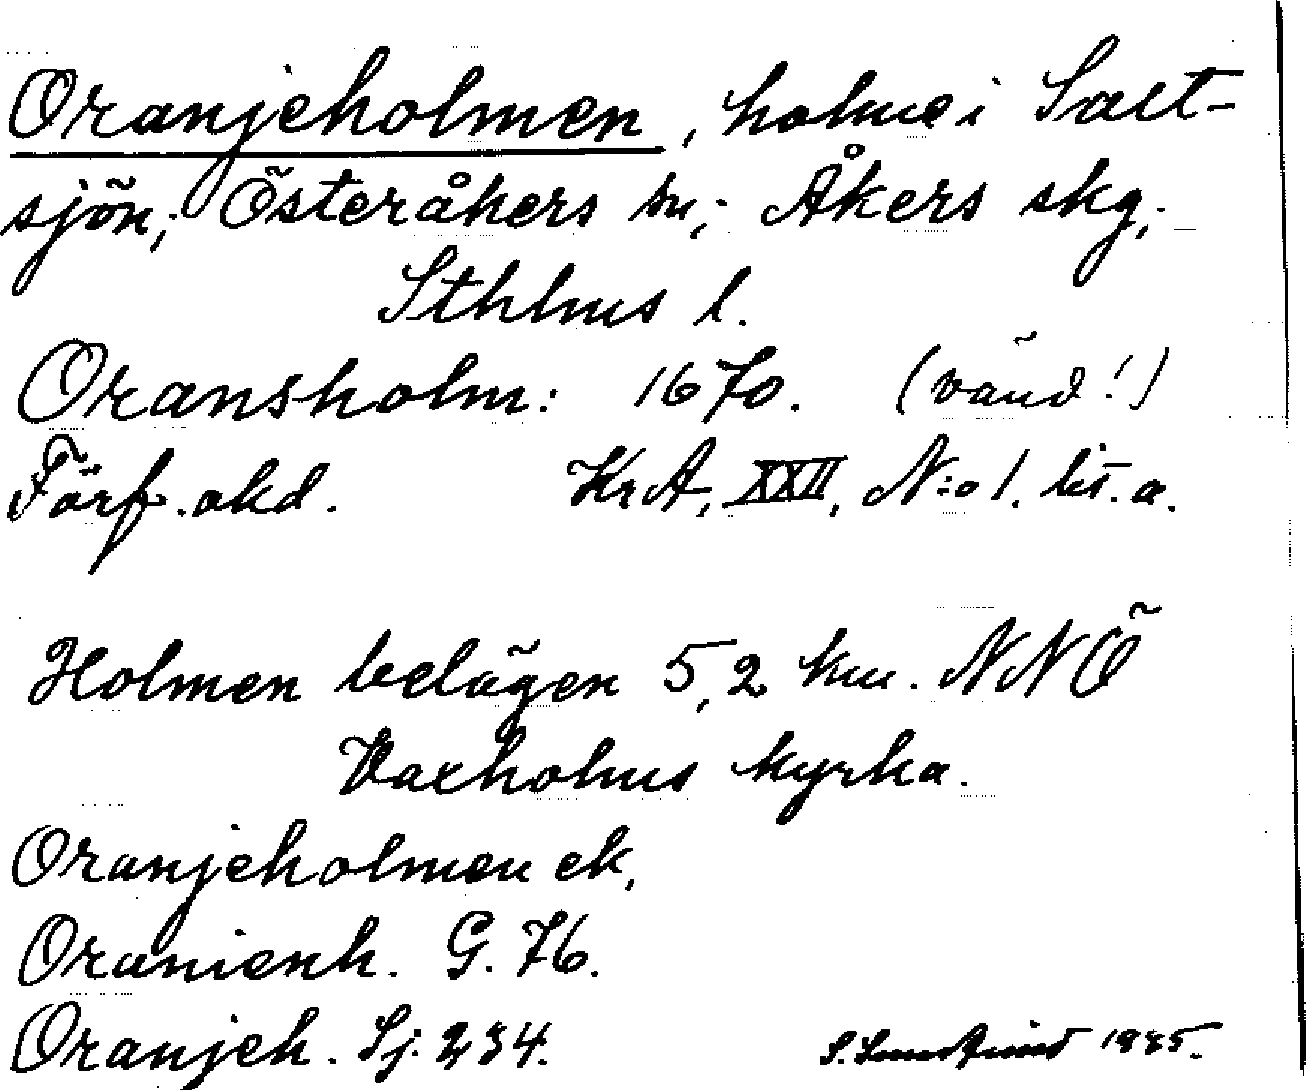 Oranjeholmen, holme i Salt-
sjön; Österåkers sn; Åkers skg,
Sthlms l.
Oransholm: 1670. (vänd!)
Förf. okd. KrA, XXII, N:o 1. lit. a.
Holmen belägen 5,2 km. NNÖ
Vaxholms kyrka.
Oranjeholmen ek,
Oranienh. G. 76.
Oranjeh. Sj. 234.
S. 1935.